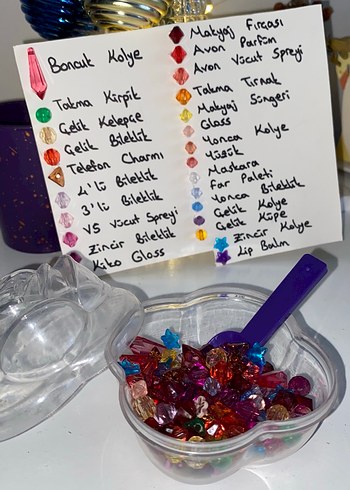 Boncuk Kolye
Takma Kirpik
Çelik Kelepçe
Çelik Bileklik
Telefon Charmı
4'lü Bileklik
3'lü Bileklik
VS Vücut Spreyi
Zincir Bileklik
Kiko Gloss
Makyaj Fırçası
Avon Parfüm
Avon Vücut Spreyi
Takma Tırnak
Makyaj Süngeri
Gloss
Yonca Kolye
Yüzük
Maskara
Far Paleti
Yonca Bileklik
Çelik Kolye
Çelik Küpe
Zincir Kolye
Lip Balm